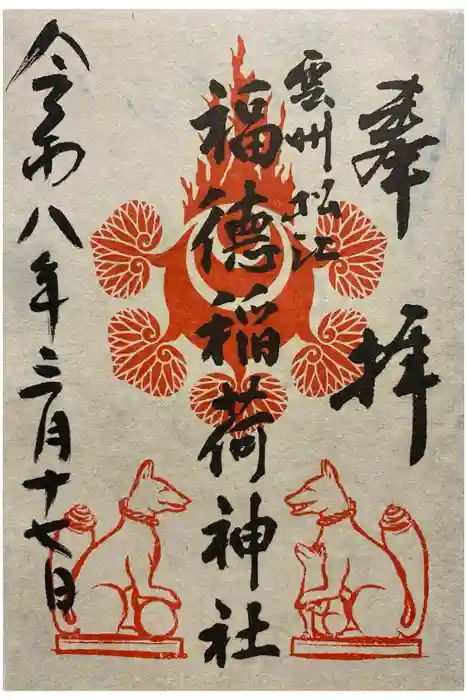 奉拝
雲州松江
福徳稲荷神社
令和八年三月十七日